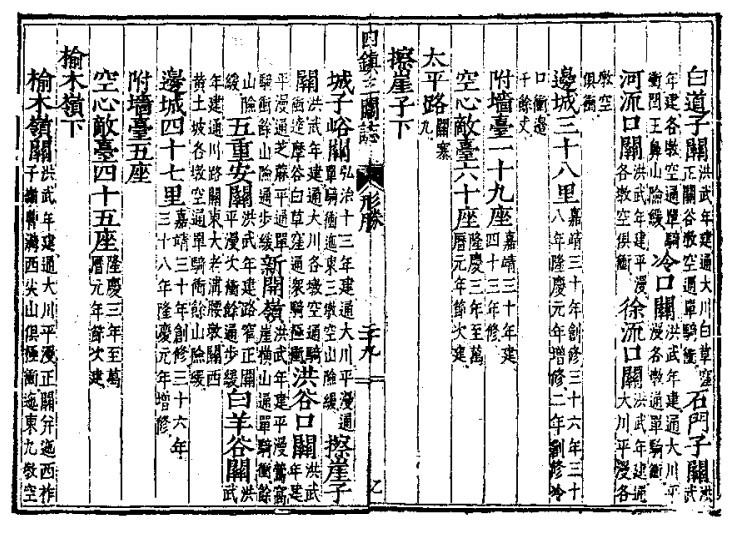 白道子關洪武年建通大川白草窪正關谷墩空通單騎衝石門子關洪武
年建各墩空通單騎衝閻王鼻山險緩冷口關洪武年建通大川平漫各墩通單騎衝
河流口關洪武年建平漫各墩空俱衝徐流口關洪武年建通大川平漫各
墩空俱衝
邊城三十八里嘉靖三十年創修三十六年三十八年隆慶元年增修二年創修冷
口衝邊千餘丈
附墻臺一十九座嘉靖三十年建四十三年修
空心敵臺六十座隆慶三年至萬曆元年節次建
太平路關寨九
擦崖子下
四鎮三關誌 形勝 三十九
城子峪關弘治十三年建通大川平漫通單騎衝迤東三墩空山險緩擦崖子
關洪武年建通大川各墩空通騎衝迤達摩谷白草窪通衆騎極衝洪谷口關洪武年建
平漫通芝蔴平通單騎衝餘山險通步緩新開嶺洪武年建平漫鷲窩崖橫山通單騎衝餘
山險緩五重安關洪武年建路窄正關平漫次衝餘通步緩白羊谷關洪武
年建通川路關東大老溝腰墩關西黃土坡各墩空通單騎衝餘山險緩
邊城四十七里嘉靖三十年創修三十六年三十八年隆慶元年增修
附墻臺五座
空心敵臺四十五座隆慶三年至萬曆元年節次建
榆木嶺下
榆木嶺關洪武年建通大川平漫正關并迤西柞子嶺 西尖山俱極衝迤東九墩空